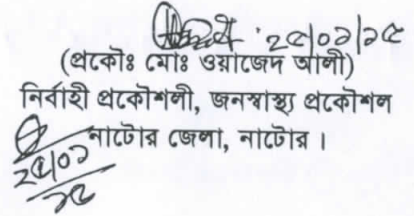 ২৫|০১|১৫
(প্রকৌঃ মোঃ ওয়াজেদ আলী)
নির্বাহী প্রকৌশলী, জনস্বাস্থ্য প্রকৌশল
নাটোর জেলা, নাটোর ।
২৫|০১
১৫